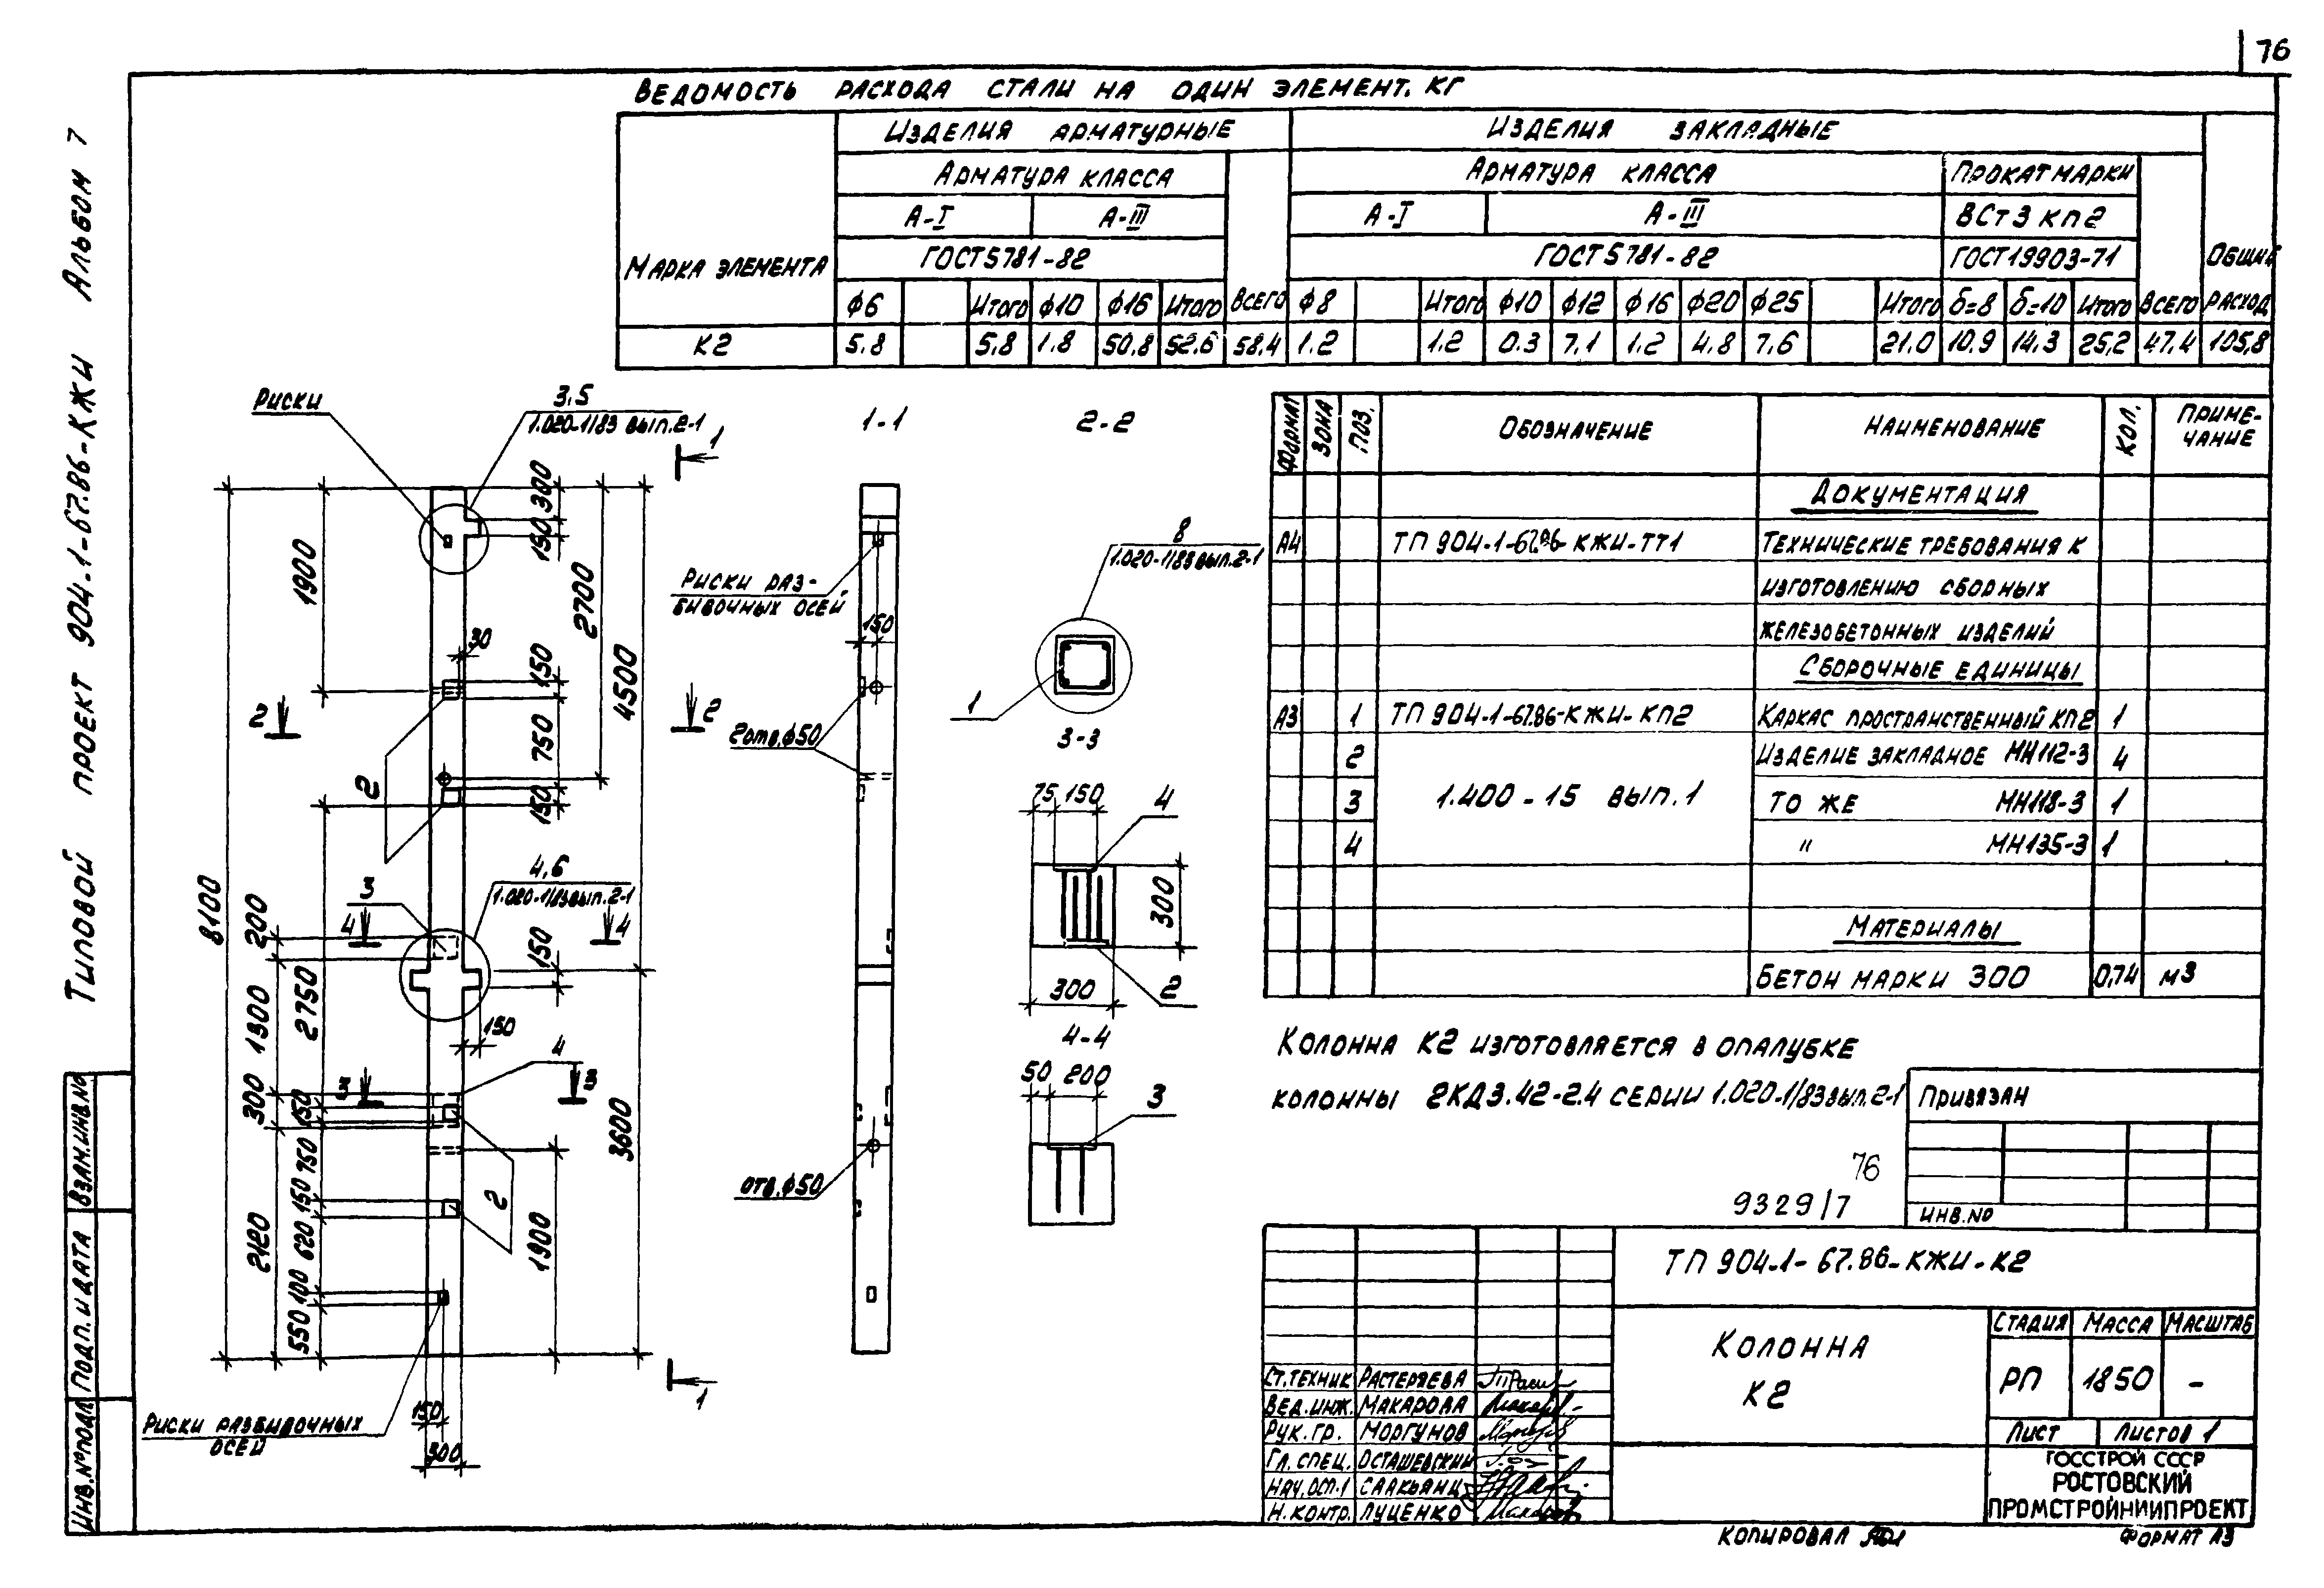 76
Типовой проект 904-1-67.86-КЖИ Альбом 7
Ведомость расхода стали на один элемент, кг
Марка элемента
Изделия арматурные
Изделия закладные
Общий расход
Арматура класса
Всего
Арматура класса
Прокат марки
Всего
А-I
А-III
А-I
А-III
ВСт3кп2
ГОСТ 5781-82
ГОСТ 5781-82
ГОСТ 19903-71
ф6 Итого ф10 ф16 Итого ф8 Итого ф10 ф12 ф16 ф20 ф25 Итого δ=8 δ=10 Итого
К2 5,8 5,8 1.8 50,8 52,6 58,4 1.2 1.2 0.3 7,1 1.2 4,8 7,6 21.0 10,9 14,3 25,2 47,4 105,8
Риски
3,5
1.020-1/83 вып.2-1
1
300
150
1900
2700
4500
30
150
750
150
2
2
2
8100
200
1300
300
2120
2750
150
750
150
620
100
550
3
4
4,6
1.020-1/83 вып.2-1
4
150
150
4
3
3600
2
1900
150
300
1
Риски разбивочных
осей
1-1
Риски раз-
бивочных осей
150
2отв.ф50
отв.ф50
2-2
8
1.020-1/83 вып.2-1
1
3-3
75 150
4
300
300
2
4-4
50 200
3
Формат Зона Поз. Обозначение Наименование Кол. Приме-
чание
Документация
А4 ТП 904-1-67.86-КЖИ-ТТ1 Технические требования к
изготовлению сборных
железобетонных изделий
Сборочные единицы
А3 1 ТП 904-1-67.86-КЖИ-КП2 Каркас пространственный КП2 1
2 Изделие закладное МН112-3 4
3 1.400-15 вып.1 То же МН118-3 1
4 " МН135-3 1
Материалы
Бетон марки 300 0,74 м3
Колонна К2 изготовляется в опалубке
колонны 2КД3.42-2.4 серии 1.020-1/83 вып.2-1
Привязан
Инв.№
76
9329/7
ТП 904-1-67.86-КЖИ-К2
Колонна
К2
Стадия Масса Масштаб
РП 1850 -
Лист Листов 1
Госстрой СССР
Ростовский
Промстройниипроект
Ст.техник Растеряева
Вед.инж. Макарова
Рук.гр. Моргунов
Гл.спец. Осташевский
Саакьянц
Н.контр. Луценко
Взам.инв.№
Подп. и дата
Инв.№подл
Копировал
Формат А3